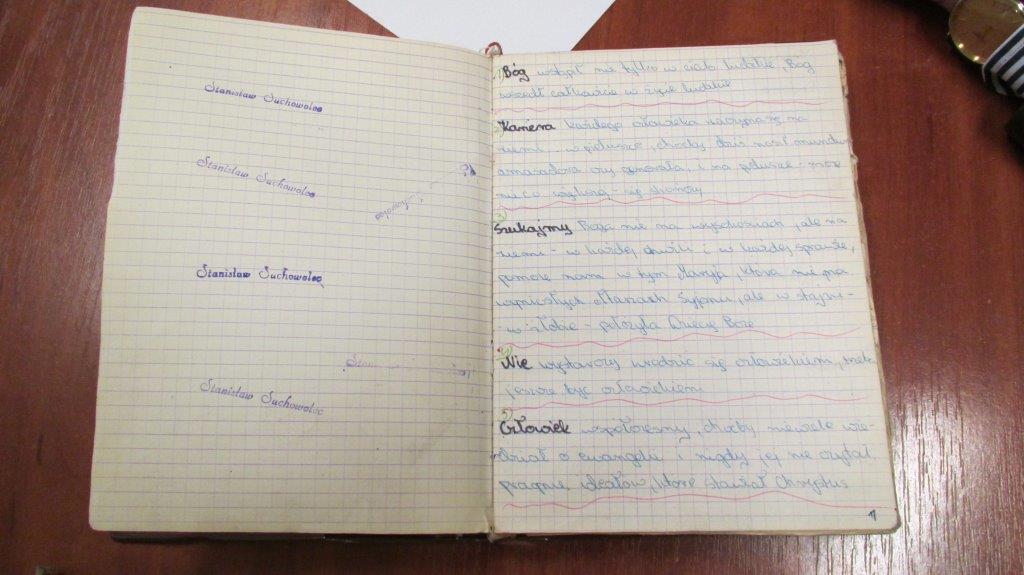 Stanisław Suchowolec
Stanisław Suchowolec
Suchowolec
Stanisław Suchowolec
Stanisław Suchowolec
1) Bóg wstąpił nie tylko w ciało ludzkie, Bóg
wszedł całkowicie w życie ludzkie
Kariera każdego człowieka zaczyna się na
ziemi, w pieluszce, choćby dziś nosił mundur
ambasadora czy generała, i na pieluszce - może
nieco większą - się skończy
3) Szukajmy Boga nie na wysokościach, ale na
ziemi - w każdej chwili i w każdej sprawie,
pomoże nam w tym Maryja, która nie na
wyniosłych Syjonu, ale w stajni -
w żłobie - położyła Dziecię Boże
4) Nie wystarczy urodzić się człowiekiem, trzeba
jeszcze być człowiekiem
5) Człowiek współczesny, choćby niewiele wie-
dział o ewangelii i nigdy jej nie czytał
pragnie ideałów, które stawiał Chrystus
1